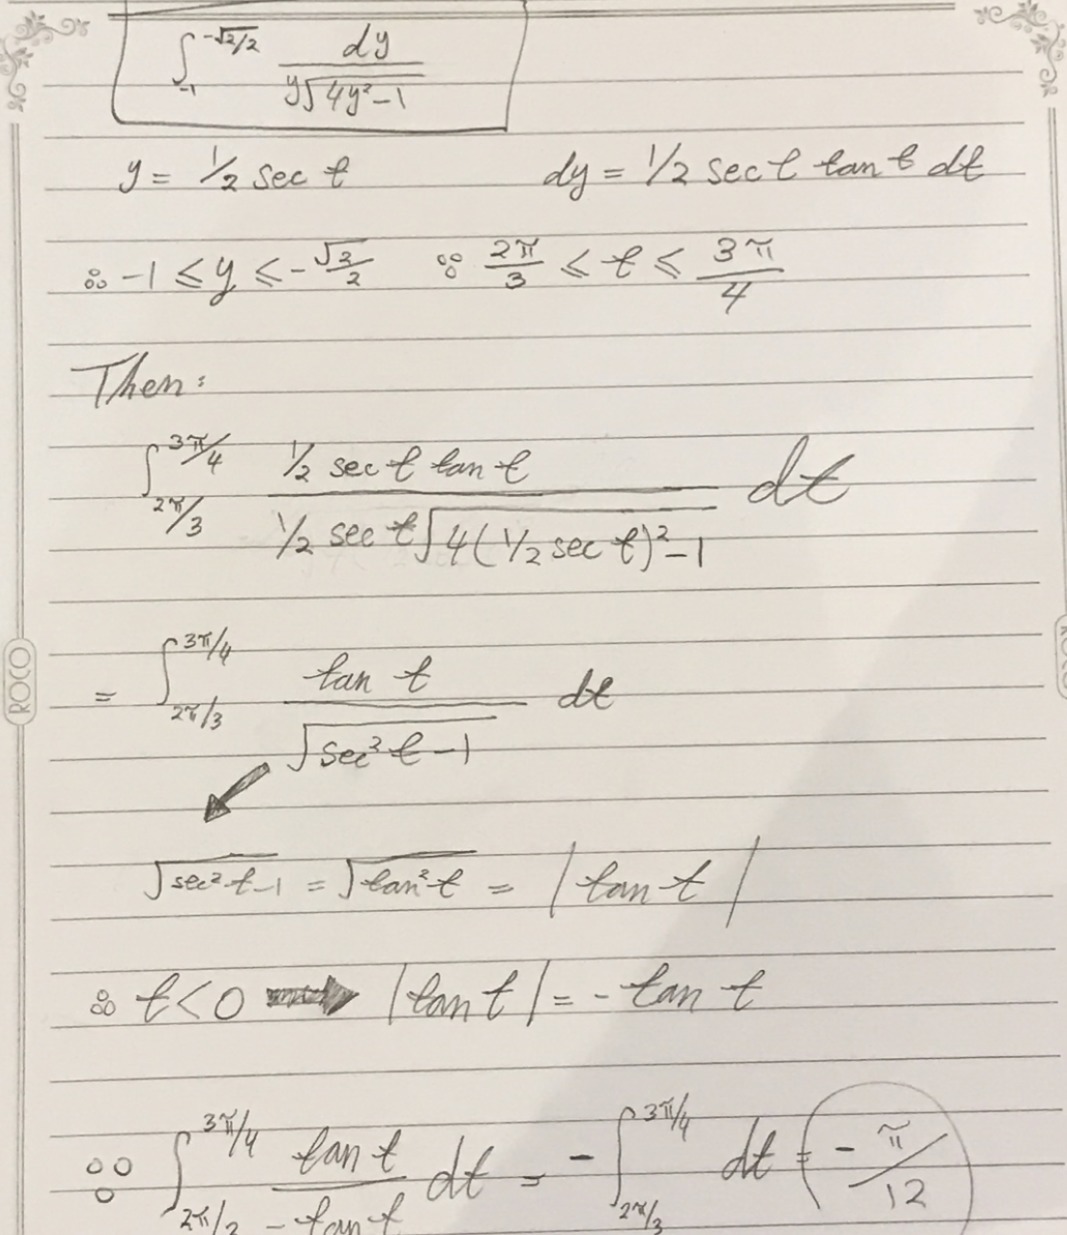 ∫_{-1}^{-√2/2} dy / (y√(4y²-1))
y = 1/2 sec t    dy = 1/2 sec t tan t dt
∴ -1 ≤ y ≤ -√2/2    ∵ 2π/3 ≤ t ≤ 3π/4
Then:
∫_{2π/3}^{3π/4} (1/2 sec t tan t) / (1/2 sec t √(4(1/2 sec t)²-1)) dt
= ∫_{2π/3}^{3π/4} tan t / √(sec² t - 1) dt
ROCO
√(sec² t - 1) = √(tan² t) = |tan t|
∴ t < 0 → |tan t| = - tan t
∵ ∫_{2π/3}^{3π/4} tan t / (- tan t) dt = - ∫_{2π/3}^{3π/4} dt = - π/12